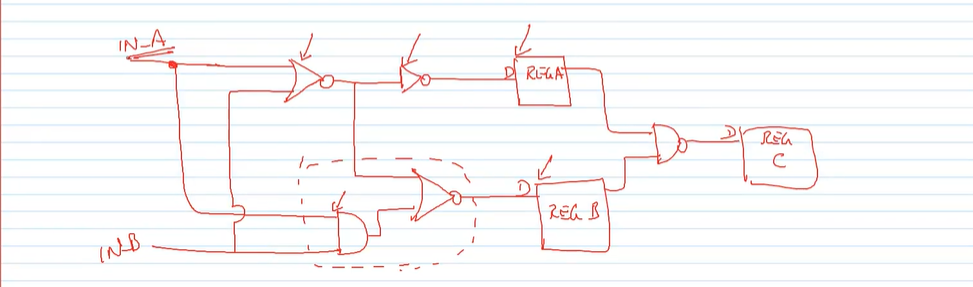 IN_A
D REGA
D REG C
D REG B
IN_B